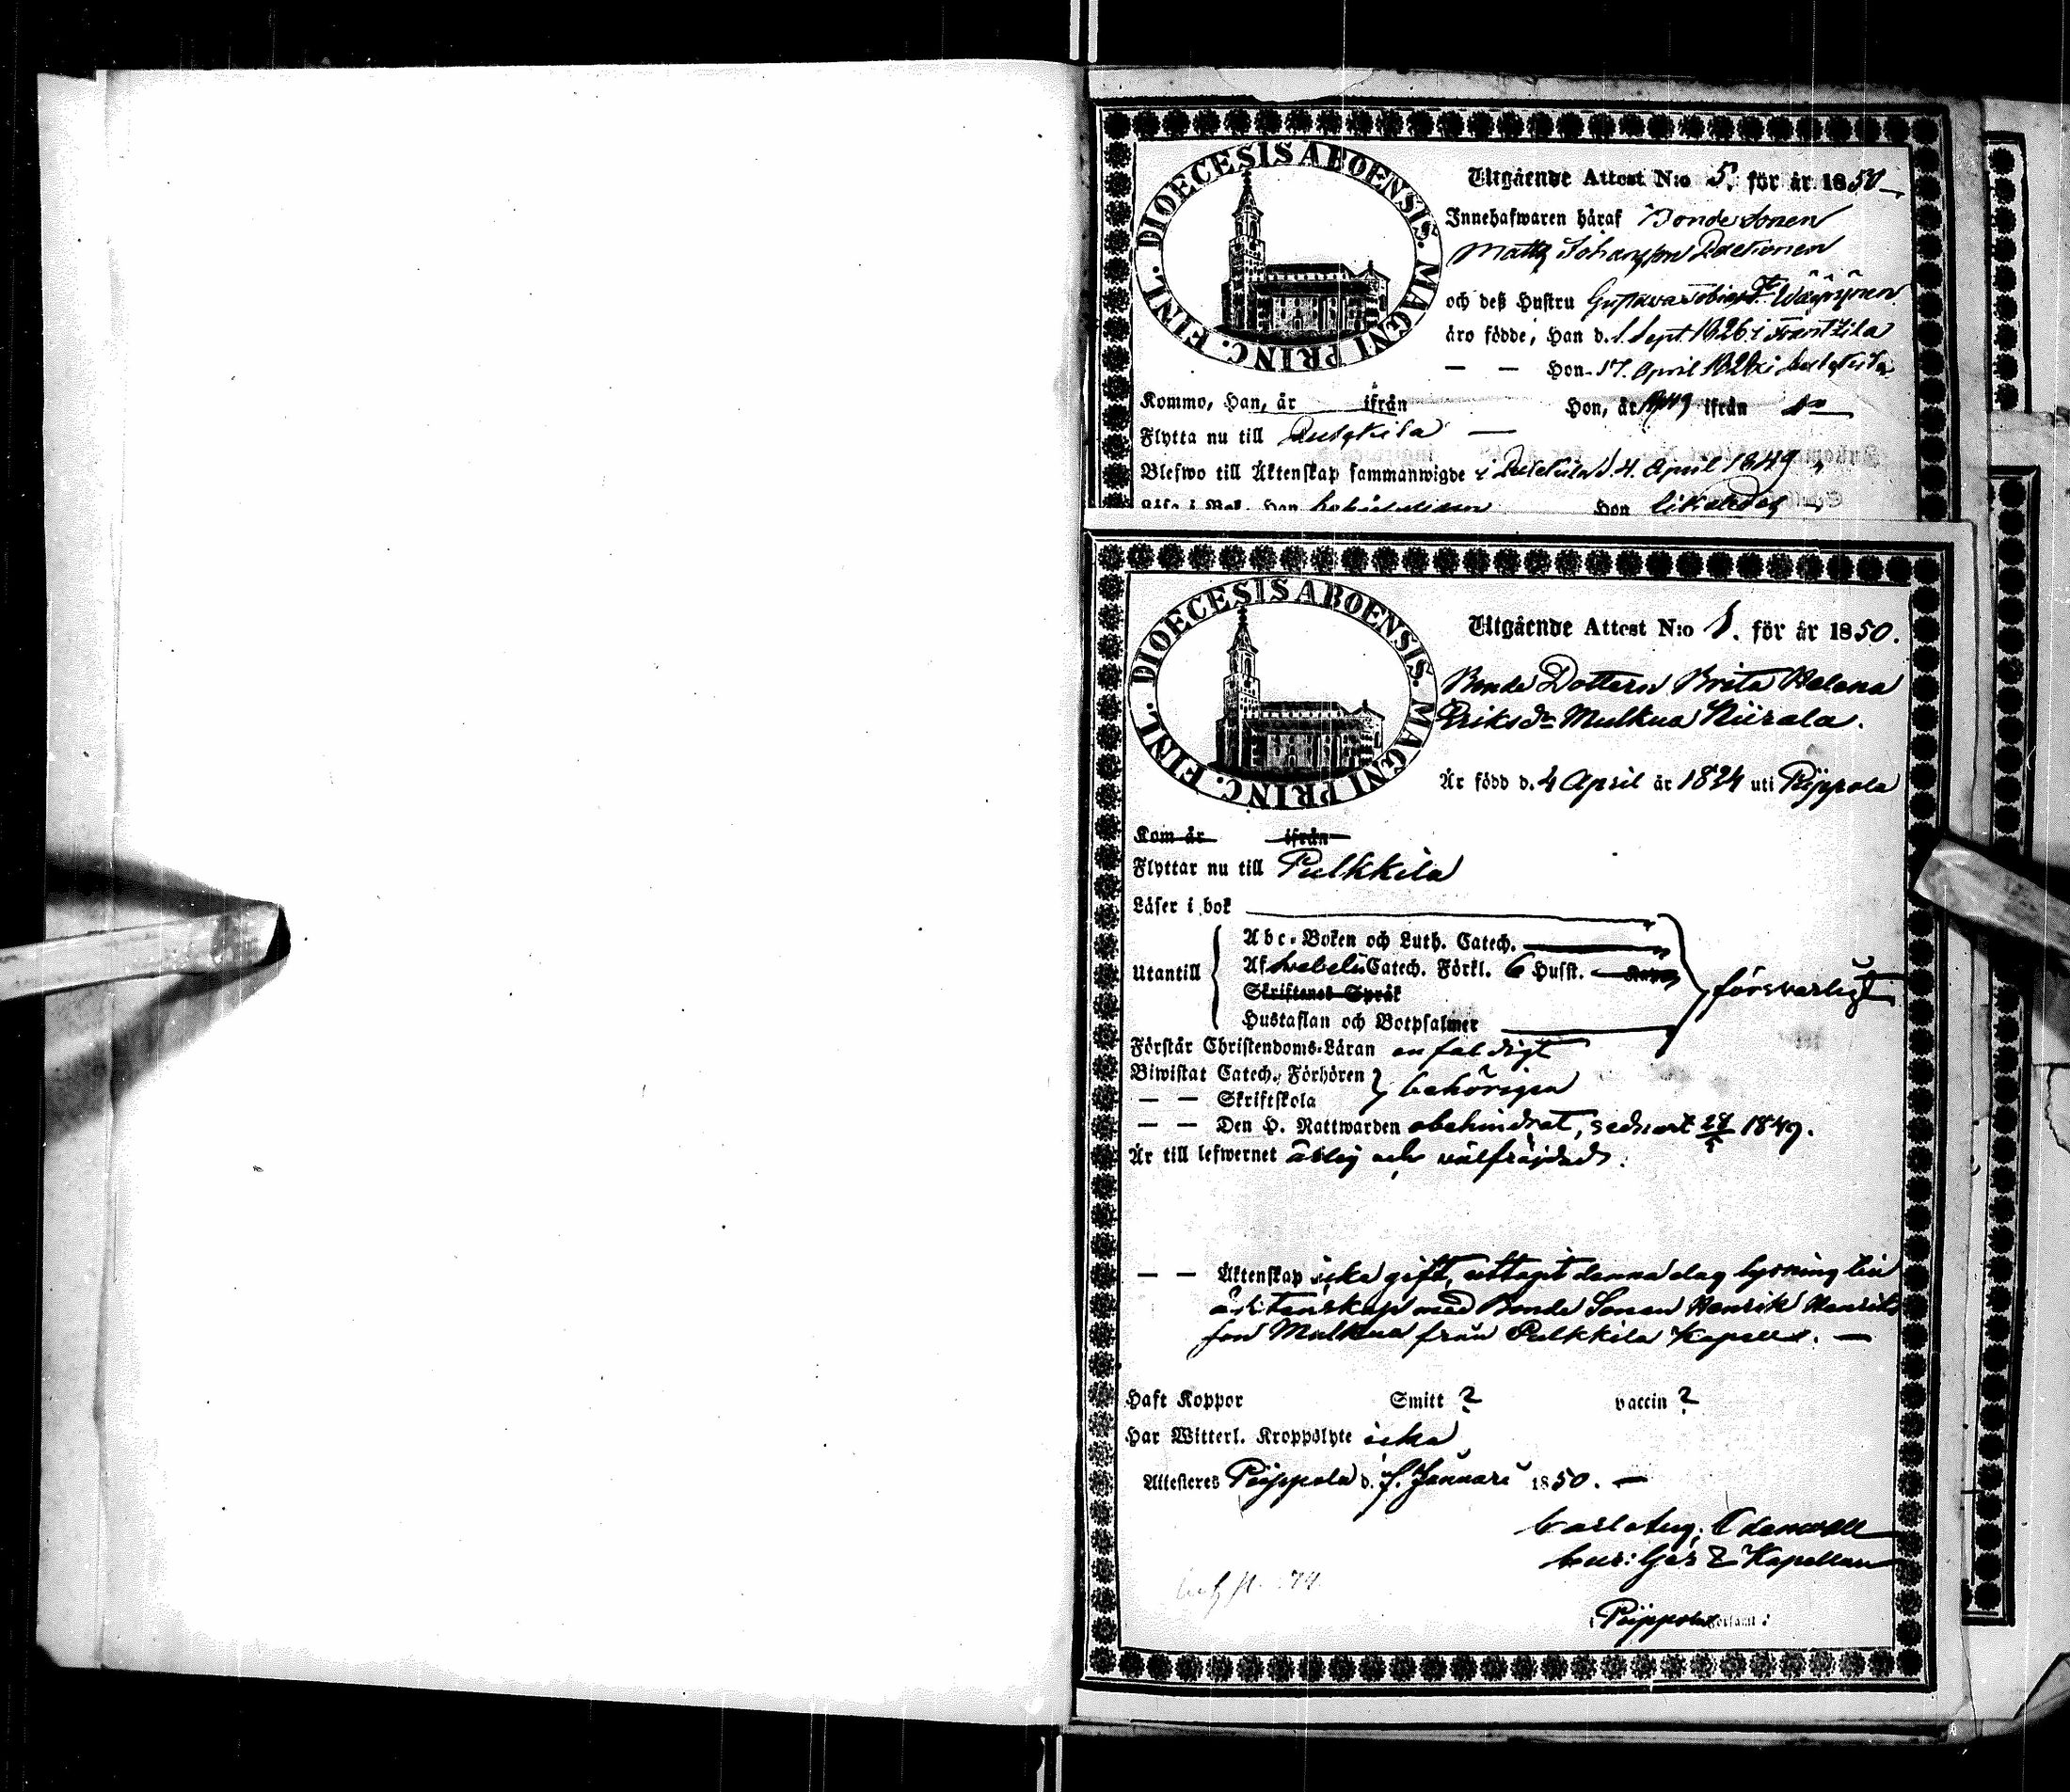 DIOECESIS ABOENSIS. MAGNI PRINC. FINL.
Utgående Attest N:o 5. för år 1850
Innehafwaren häraf Bonde sonen
Matts Johansson
och deß Hustru Gustava
äro födde, Han d. 1. Sept. 1826 i Frantzila
— — Hon 17. April
Kommo, Han, år ifrån Hon, år 1849 ifrån
Flytta nu till
Blefwo till Äktenskap sammanwigde i d. 4. April 1849
Hon likaledes
DIOECESIS ABOENSIS. MAGNI PRINC. FINL.
Utgående Attest N:o 1. för år 1850.
Bonde Dottern Brita Helena
Eriksdr Mulkua Niirala.
Är född d. 4 April år 1824 uti Pippola
Kom år ifrån
Flyttar nu till Pulkkila
Läser i bok
Abc-Boken och Luth. Catech.
Utantill Af Svebelii Catech. Förkl. 6 Husst. försvarligt
Skriftenes Språk
Hustaflan och Botpsalmer
Förstår Christendoms-Läran enfaldigt
Biwistat Catech. Förhören behörigen
— — Skriftskola
— — Den H. Nattwarden obehindrat, sednast 1849.
Är till lefwernet ärlig och välfräjdad.
— — Äktenskap icke gift, uttagit denna dag lysning till
äktenskap med Bonde Sonen Henrik Henriks
son Mulkua från Pulkkila Kapell. —
Haft Koppor Smitt ? vaccin ?
Har Witterl. Kroppslyte icke
Attesteres Pippola d. 1. Januari 1850. —
Carl Aug.
Kapellan
Pippola